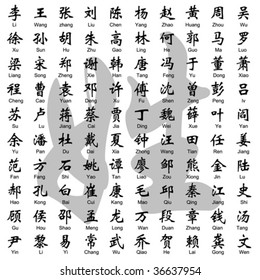 李 王 张 刘 陈 杨 赵 黄 周 吴
Li Wang Zhang Liu Chen Yang Zhao Huang Zhou Wu
徐 孙 胡 朱 高 林 何 郭 马 罗
Xu Sun Hu Zhu Gao Lin He Guo Ma Luo
梁 宋 郑 谢 韩 唐 冯 于 董 萧
Liang Song Zheng Xie Han Tang Feng Yu Dong Xiao
程 曹 袁 邓 许 傅 沈 曾 彭 吕
Cheng Cao Yuan Deng Xu Fu Shen Zeng Peng
苏 卢 蒋 蔡 贾 丁 魏 薛 叶 阎
Su Lu Jiang Cai Jia Ding Wei Xue Ye Yan
余 潘 杜 戴 夏 钟 汪 田 任 姜
Yu Pan Du Dai Xia Zhong Wang Tian Ren Jiang
范 方 石 姚 谭 廖 邹 熊 金 陆
Fan Fang Shi Yao Tan Liao Zou Xiong Jin Lu
郝 孔 白 崔 康 毛 邱 秦 江 史
Hao Kong Bai Cui Kang Mao Qiu Qin Jiang Shi
顾 侯 邵 孟 龙 万 段 章 钱 汤
Gu Hou Shao Meng Long Wan Duan Zhang Qian Tang
尹 黎 易 常 武 乔 贺 赖 龚 文
Yin Li Yi Chang Wu Qiao He Lai Gong Wen
姓
shutterstock
IMAGE ID: 36637954
www.shutterstock.com